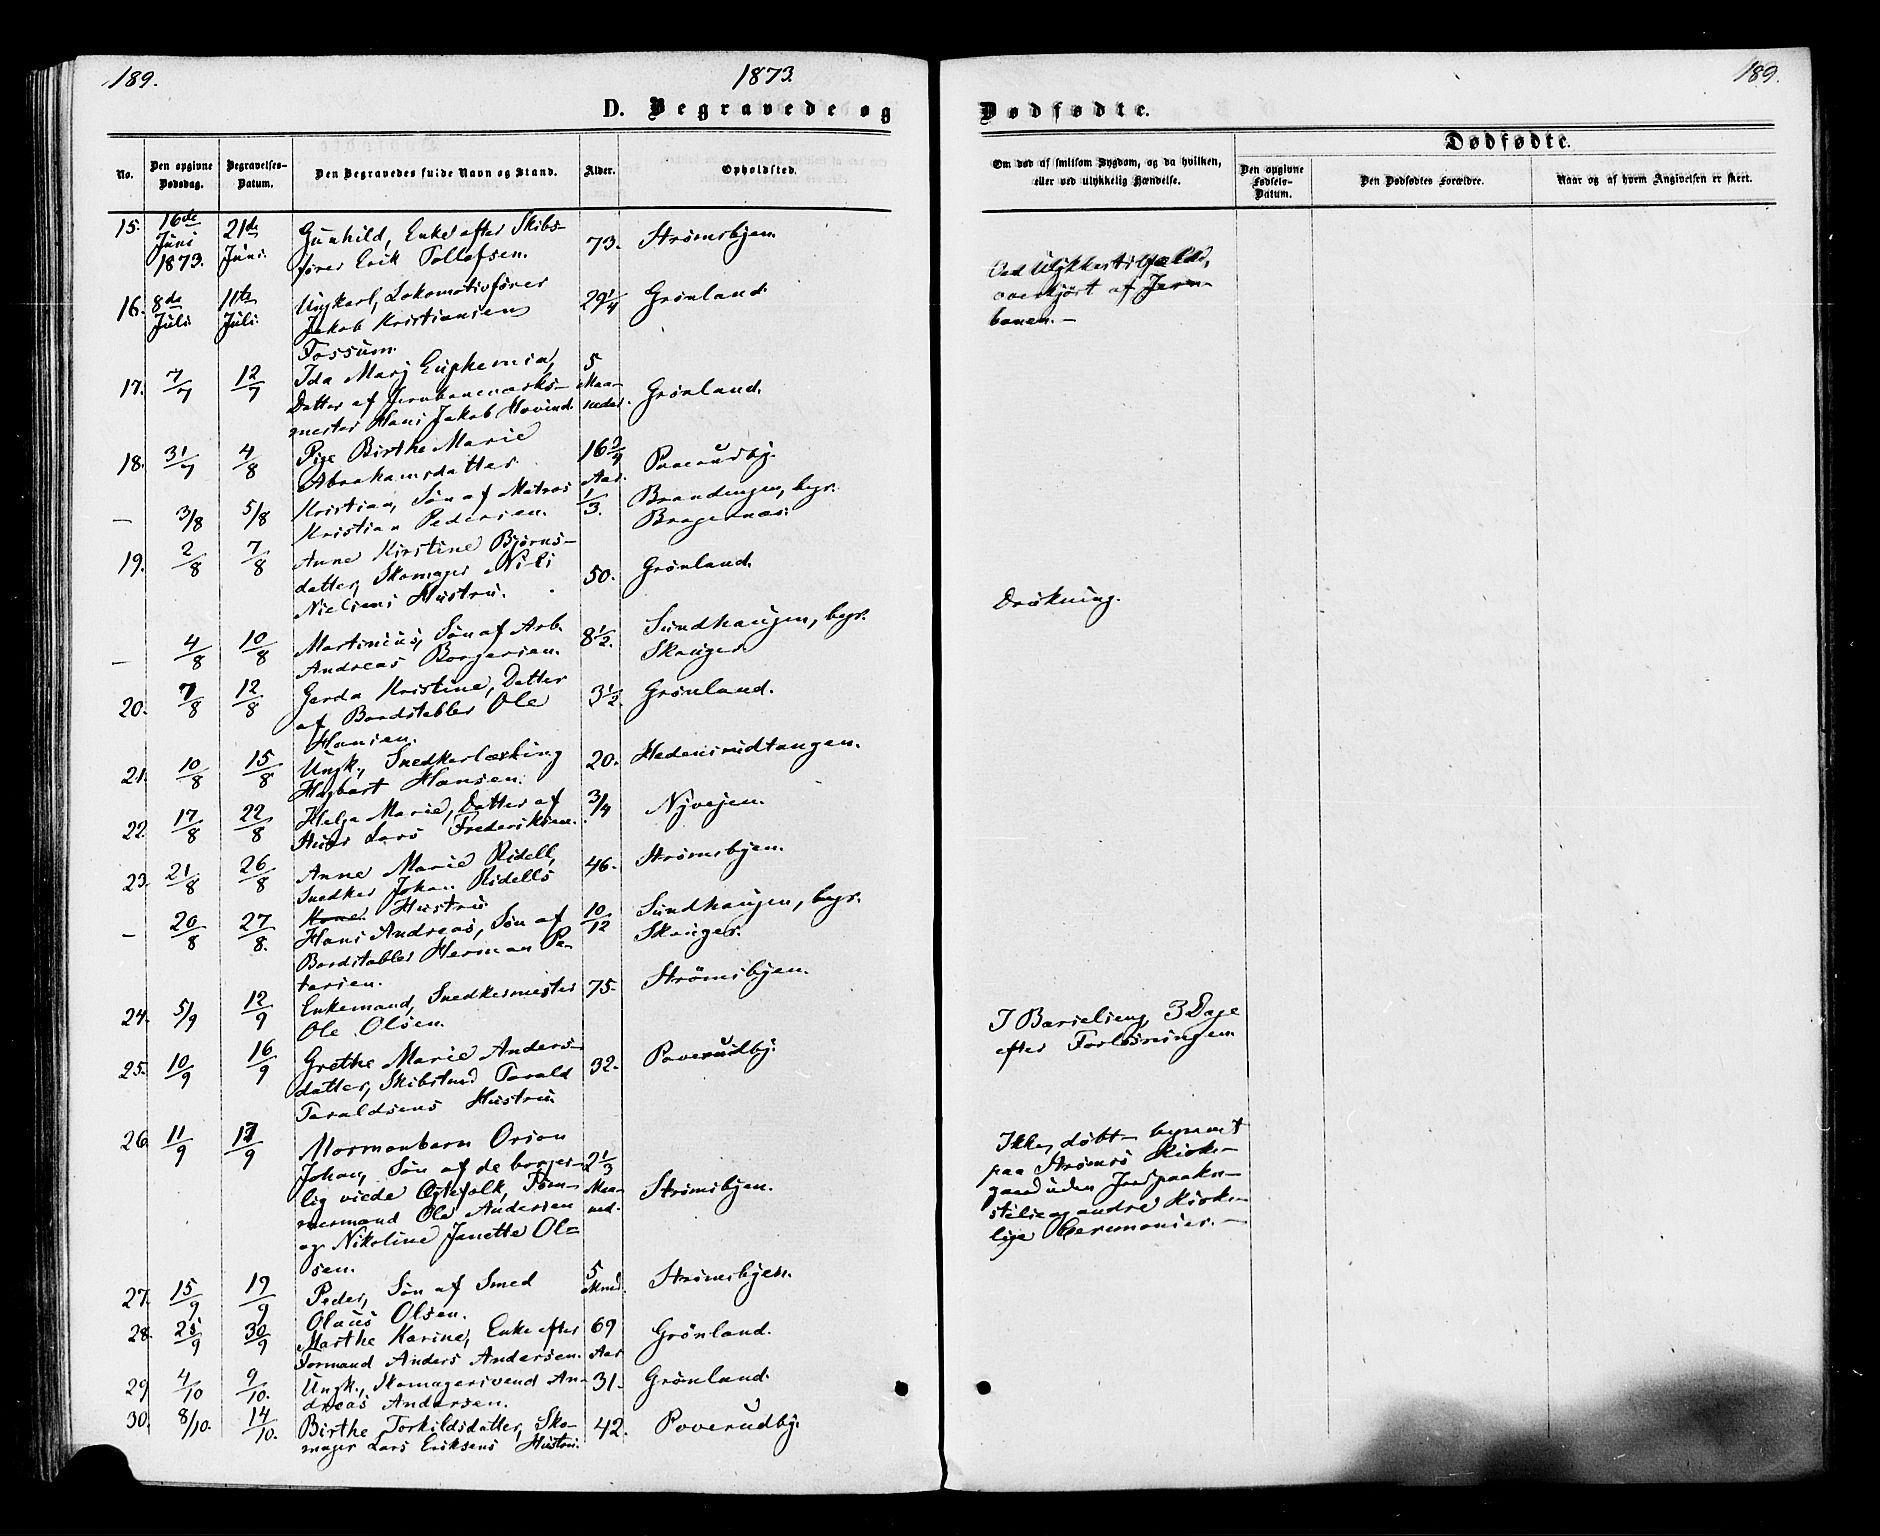 189.
1873.
D. Begravede og
No.
Den opgivne Dødsdag.
Begravelses-Datum.
Den Begravedes fulde Navn og Stand.
Alder.
Opholdsted.
15. 16de Juni 1873. 21de Juni. Gunhild, Enke efter Skibs- 73. Strømsbyen.
fører Erik Tollefsen.
16. 8de Juli. 11te Juli. Ungkarl, Lokomotivfører 29 1/4 Grønland.
Jakob Kristiansen
Fossum.
17. 7/7 12/7 Ida Marj Euphemia, 5 Maaneder. Grønland.
Datter af Jernbaneværks-
mester Hans Jakob Hovind.
18. 31/7 4/8 Pige Birthe Marie 16 Aar. Poverudby.
Abrahamsdatter.
— 3/8 5/8 Kristian, Søn af Matros 1/3. Brandengen, begr.
Kristian Pedersen. Bragernæs.
19. 2/8 7/8 Anne Kirstine Bjørns- 50. Grønland.
datter, Skomager Niels
Nielsens Hustru.
— 4/8 10/8 Martinius, Søn af Arb. 8 1/2. Sundhaugen, begr.
Andreas Borgersen. Skouger.
20. 7/8 12/8 Gerda Kristine, Datter 3 1/2. Grønland.
af Bordstabler Ole
Hansen.
21. 10/8 15/8 Ungk., Snedkerlærling 20. Hedensrudtangen.
Hagbart Hansen.
22. 17/8 22/8 Helga Marie, Datter af 3/4 Nyvejen.
Lars Frederiksen.
23. 21/8 26/8 Anne Marie Ridell, 46. Strømsbyen.
Snedker Johan Ridells
Kone. Hustru.
— 20/8 27/8. Hans Andreas, Søn af 10/12 Sundhaugen, begr.
Bordstabler Herman Pe- Skouger.
tersen.
24. 5/9 12/9 Enkemand, Snedkermester 75. Strømsbyen.
Ole Olsen.
25. 10/9 16/9 Grethe Marie Anders- 32. Poverudby.
datter, Skibstmd Tarald
Taraldsens Hustru
26. 11/9 17/9 Mormonbarn Orson
Johan, Søn af de borger- 2 1/3
lig viede Egtefolk, Tøm- Maaned. Strømsbyen.
mermand Ole Andersen
og Nikoline Janette Ol=
sen.
27. 15/9 19/9 Peder, Søn af Smed 5 Mnd. Strømsbyen.
Olaus Olsen.
28. 25/9 30/9 Marthe Karine, Enke efter 69 Aar Grønland.
Formand Anders Andersen.
29 4/10 9/10. Ungk., Skomagersvend An- 31. Grønland.
dreas Andersen.
30. 8/10. 14/10. Birthe Torkildsdatter, Sko- 42. Poverudby.
mager Lars Eriksens Hustru.
189.
Dødfødte.
Dødfødte.
Om død af smitsom Sygdom, og da hvilken, eller ved ulykkelig Hændelse.
Den opgivne Fødsels-Datum.
Den Dødfødtes Forældre.
Naar og af hvem Angivelsen er skeet.
Ved Ulykkestilfælde,
overkjørt af Jern-
banen. —
Drukning.
I Barselseng 3 Dage
efter Forløsningen.
Ikke døbt — begravet
paa Strømsø Kirke-
gaard uden Jordpaaka-
stelse og andre Kirke-
lige Ceremonier. —